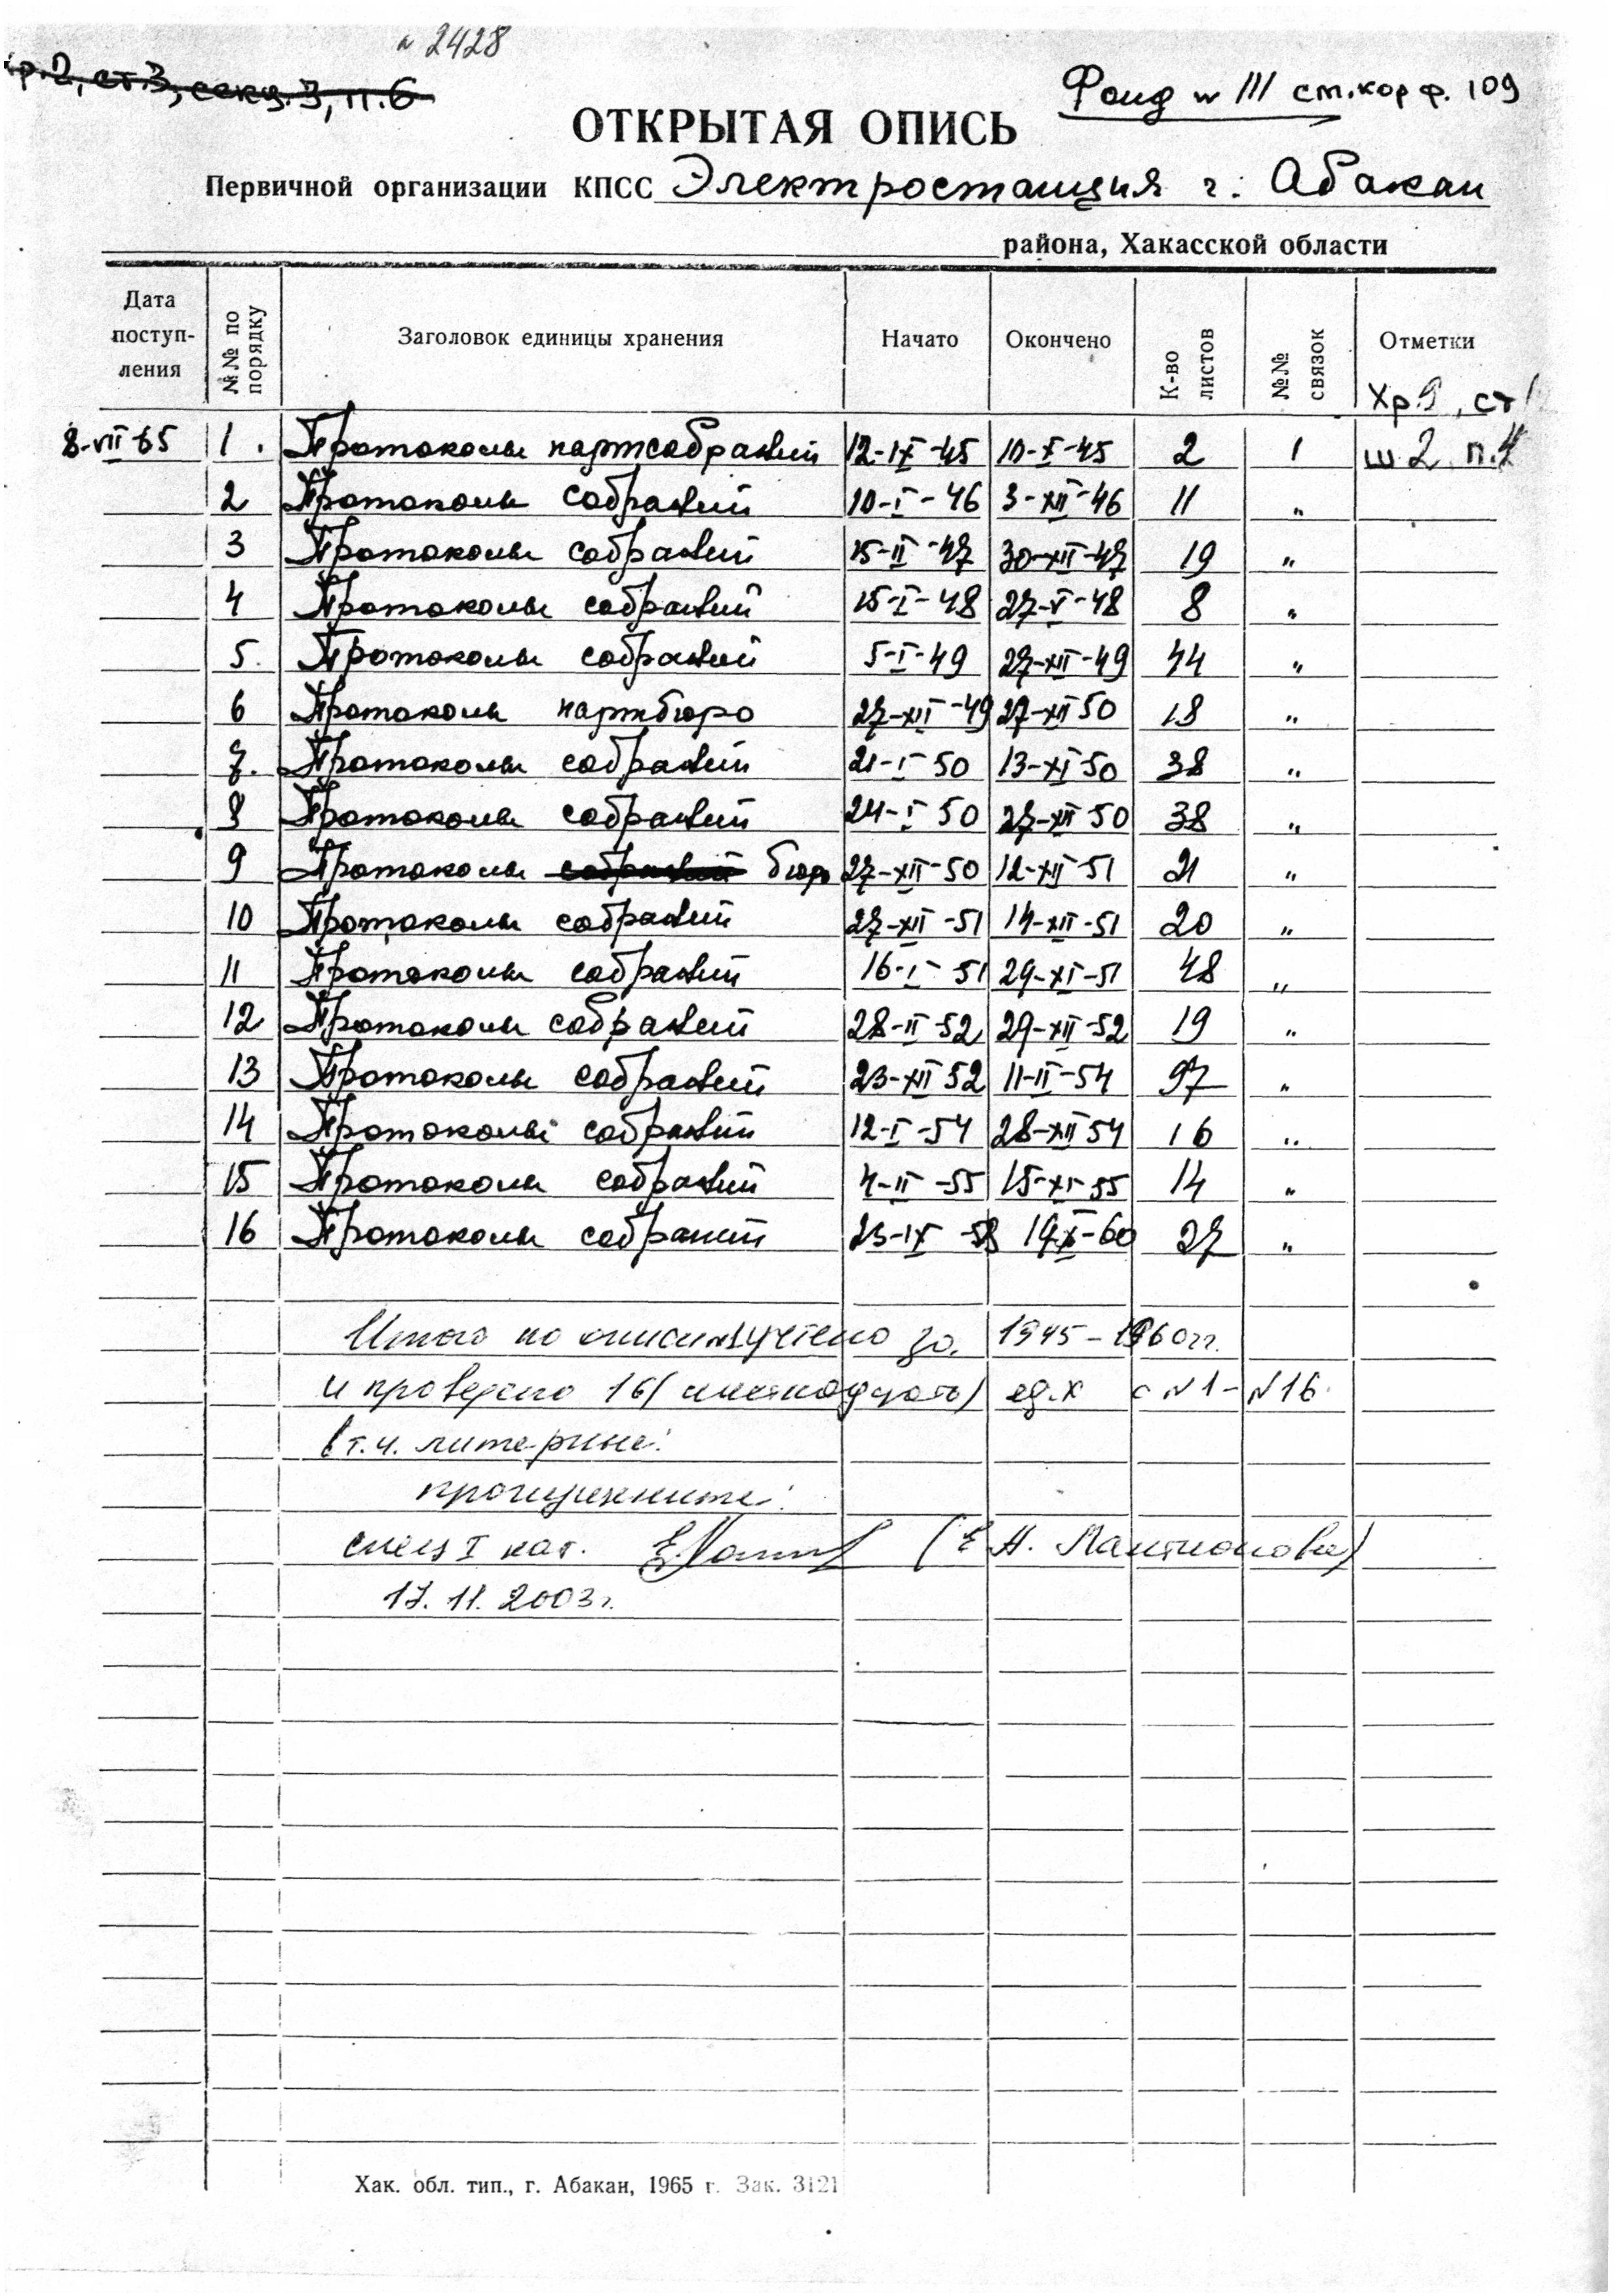 № 2428
хр.2, ст.3, секц.3, п.6
Фонд № 111 ст.кор ф. 109
ОТКРЫТАЯ ОПИСЬ
Первичной организации КПСС Электростанция г. Абакан
района, Хакасской области
Дата поступления №№ по порядку Заголовок единицы хранения Начато Окончено К-во листов №№ связок Отметки
Хр.9, ст 1
8-VII-65 1. Протоколы партсобраний 12-IX-45 10-X-45 2 1 ш.2. п.4
2 Протоколы собраний 10-I-46 3-XII-46 11 "
3 Протоколы собраний 15-II-47 30-XII-47 19 "
4 Протоколы собраний 15-I-48 27-V-48 8 "
5. Протоколы собраний 5-I-49 27-XII-49 44 "
6 Протоколы партбюро 27-XII-49 27-XII 50 18 "
7. Протоколы собраний 21-I 50 13-XI 50 38 "
8 Протоколы собраний 24-I 50 27-XII 50 38 "
9 Протоколы собраний бюро 27-XII-50 12-XII-51 21 "
10 Протоколы собраний 27-XII-51 14-XII-51 20 "
11 Протоколы собраний 16-I-51 29-XI-51 48 "
12 Протоколы собраний 28-II-52 29-XII-52 19 "
13 Протоколы собраний 23-XII 52 11-II-54 97 "
14 Протоколы собраний 12-I-54 28-XII 54 16 "
15 Протоколы собраний 4-II-55 15-XI-55 14 "
16 Протоколы собраний 23-IX-58 19-X-60 27 "
Итого по описи №1 учтено за 1945-1960 гг.
и проверено 16 (шестнадцать) ед.х с №1-№16.
в т.ч. литерные:
пропущенные:
спец I кат. (Е.Н. Лактионова)
17.11.2003г.
Хак. обл. тип., г. Абакан, 1965 г. Зак. 3121